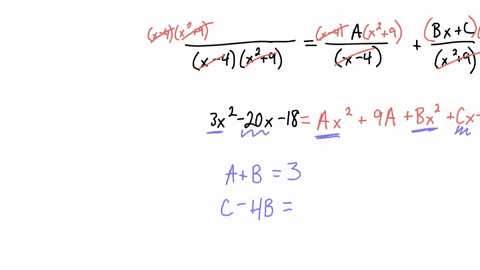 (x-4)(x²+9) / (x-4)(x²+9) = (x-4) A(x²+9) / (x-4) + (Bx+C) / (x²+9)
3x²-20x-18 = Ax² + 9A + Bx² + Cx-
A+B = 3
C-4B =